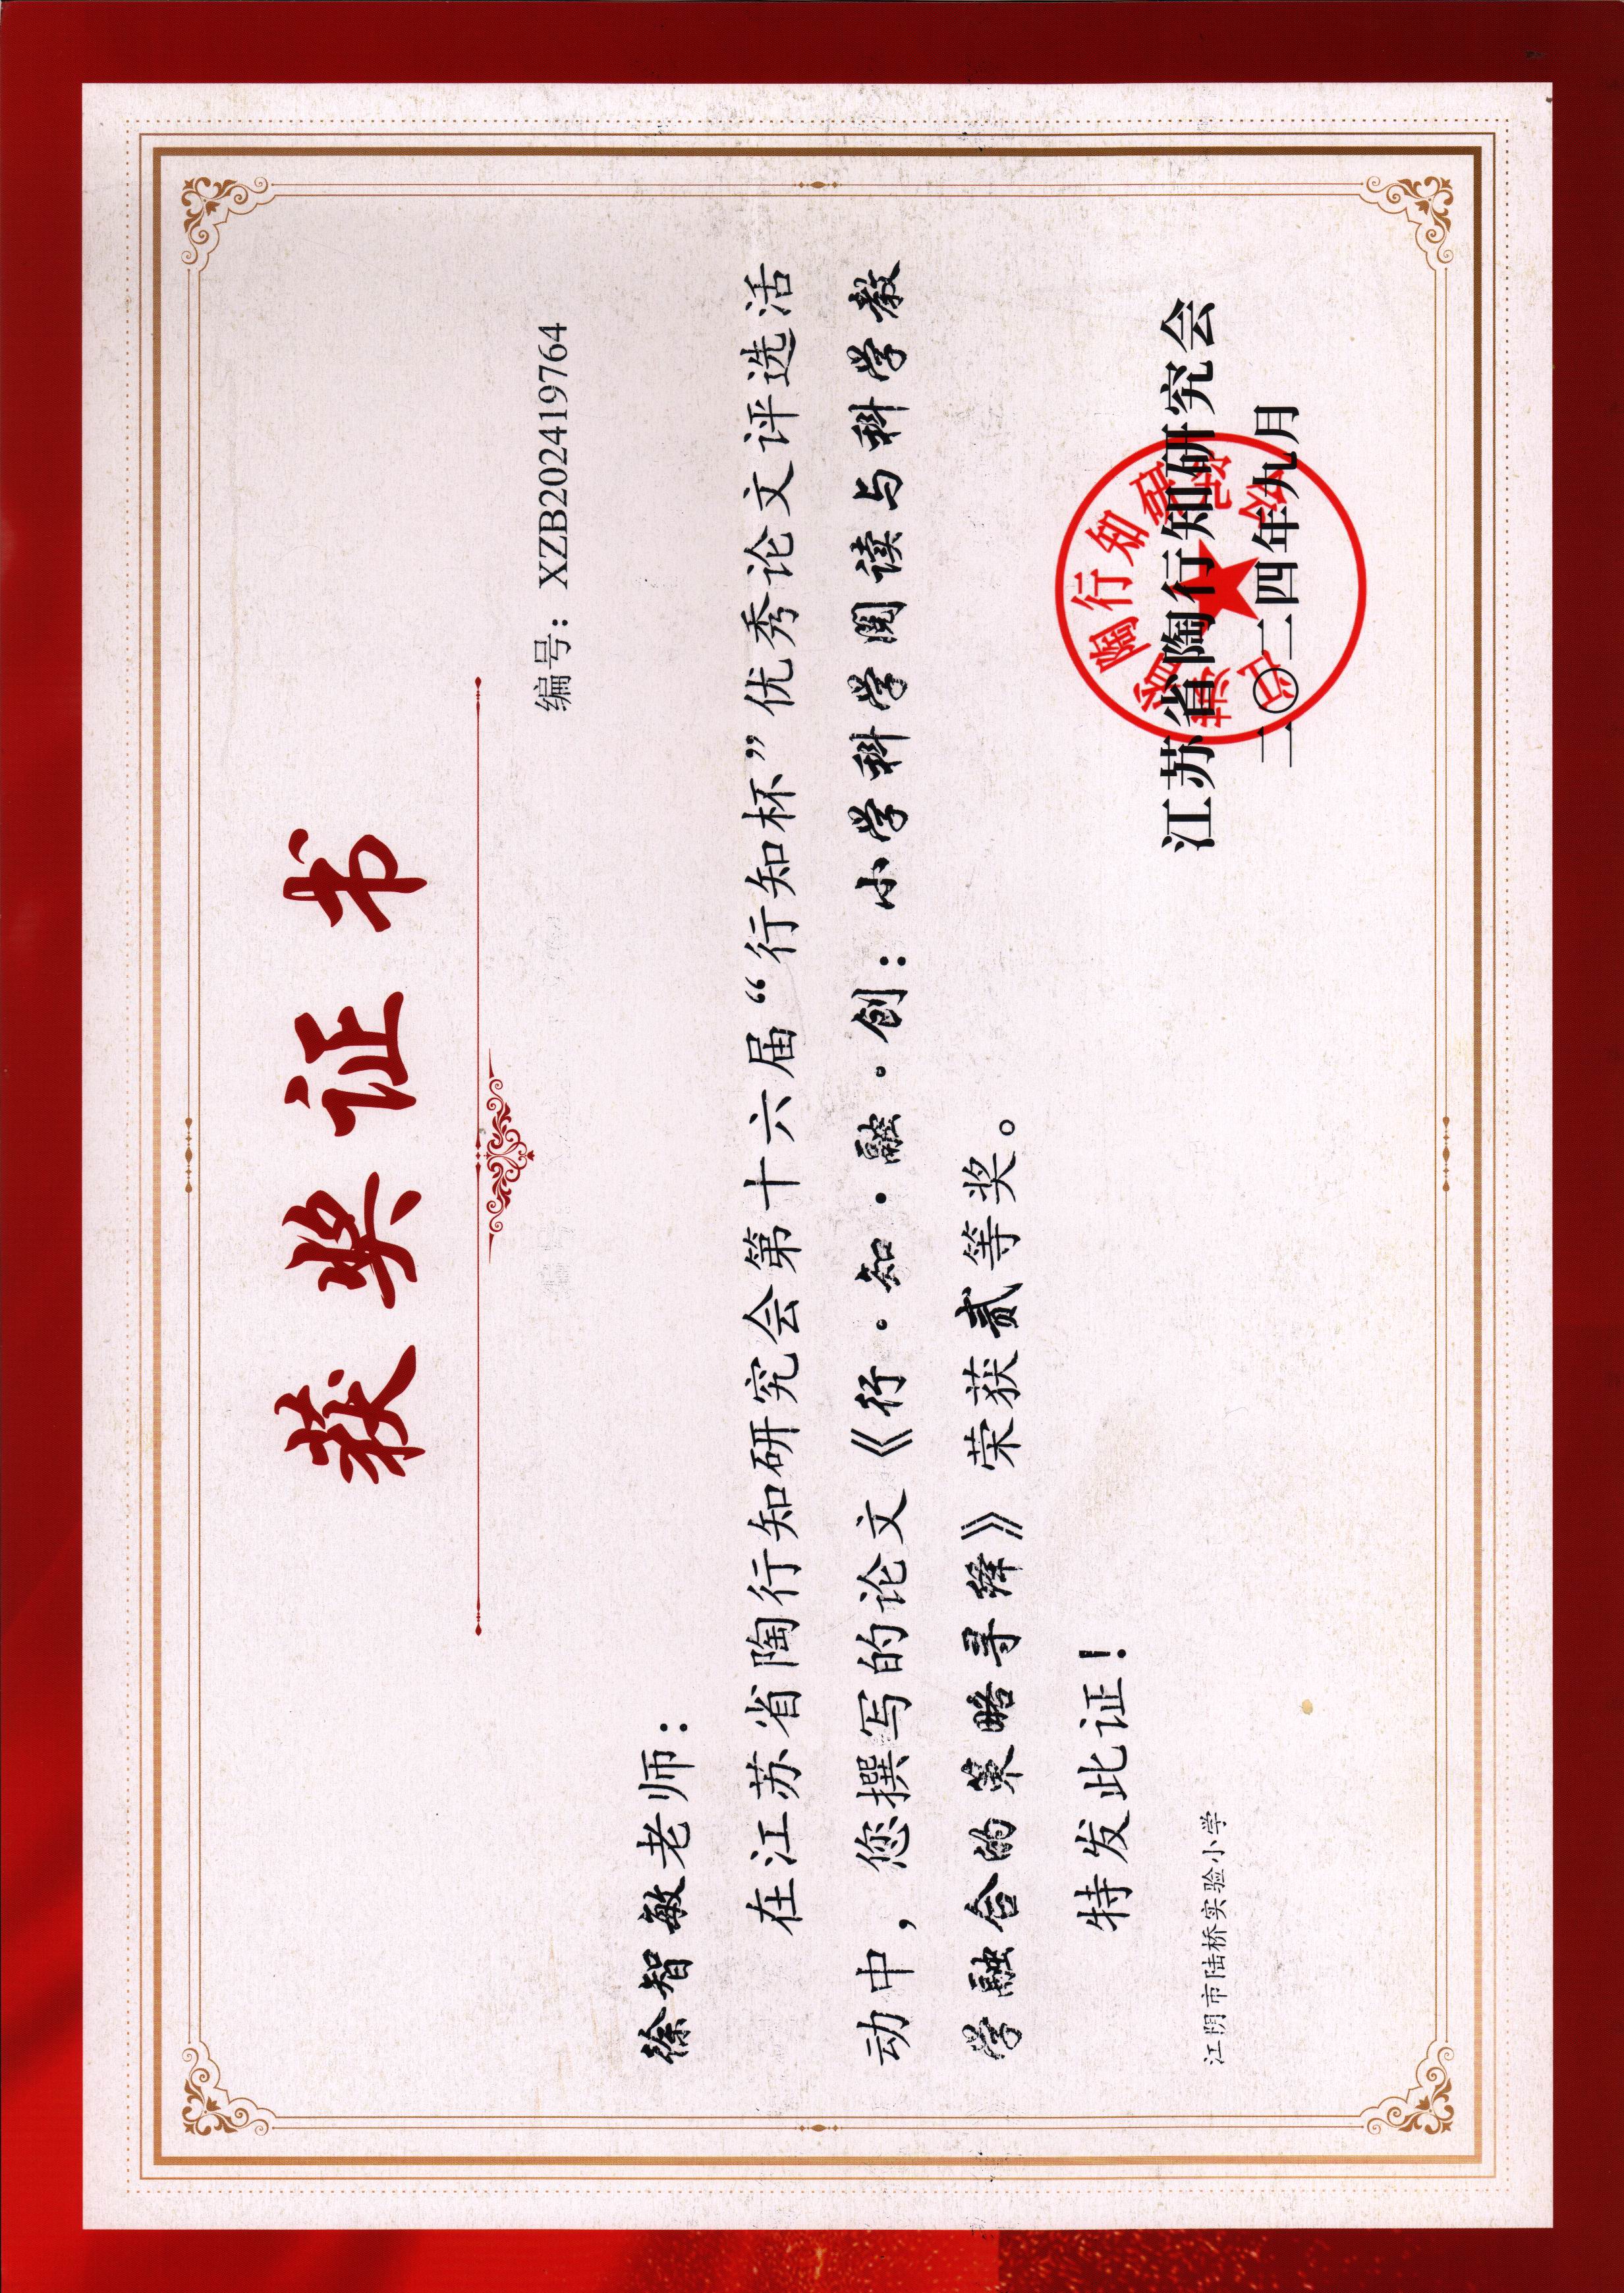 获奖证书
编号：XZB202419764
徐智敏老师：
在江苏省陶行知研究会第十六届“行知杯”优秀论文评选活
动中，您撰写的论文《行·知·融·创：小学科学阅读与科学教
学融合的策略寻绎》荣获贰等奖。
特发此证！
江阴市陆桥实验小学
江苏省陶行知研究会
二〇二四年九月
江苏省陶行知研究会